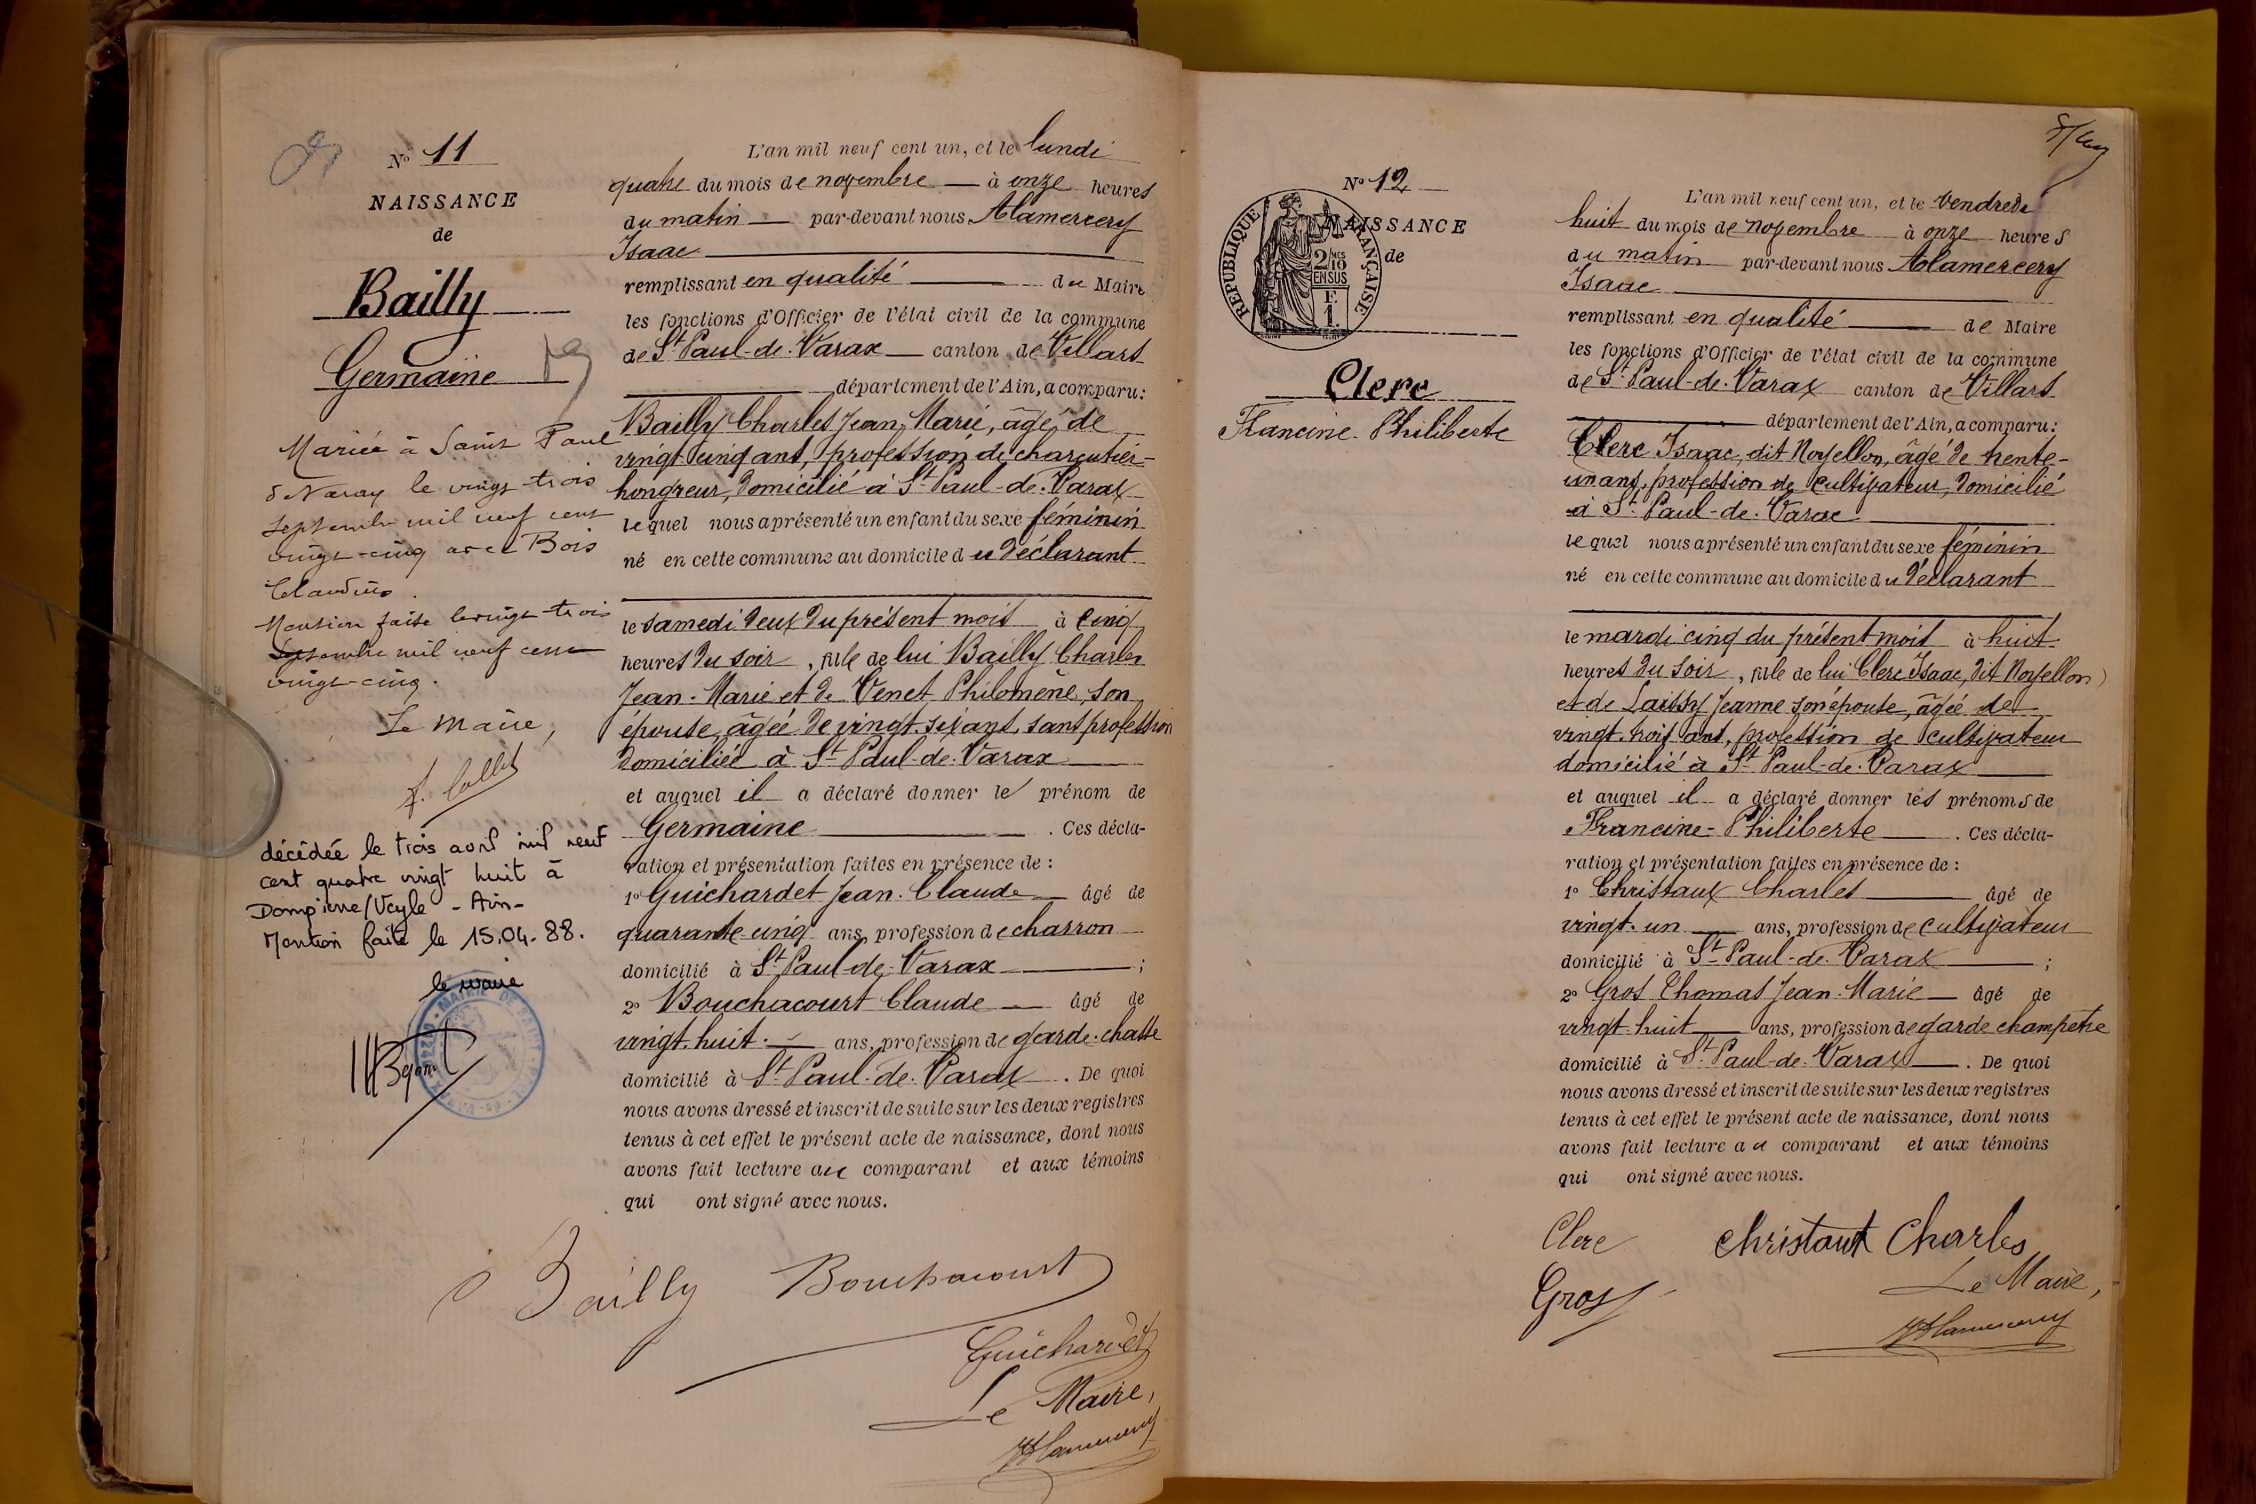 Nº 11
NAISSANCE
de
Bailly
Germaine
Mariée à Saint Paul
de Varax le vingt trois
septembre mil neuf cent
vingt-cinq avec Bois
Claudius.
Mention faite le vingt trois
septembre mil neuf cent
vingt-cinq.
Le Maire,
décédée le trois avril mil neuf
cent quatre vingt huit à
Dompierre/Veyle - Ain -
Mention faite le 15.04.88.
le maire
L'an mil neuf cent un, et le lundi
quatre du mois de novembre — à onze heures
du matin — par-devant nous Alamercery
Isaac
remplissant en qualité — de Maire
les fonctions d'Officier de l'état civil de la commune
de St Paul-de-Varax — canton de Villars
département de l'Ain, a comparu :
Bailly Charles Jean Marie, âgé de
vingt cinq ans, profession de charcutier-
hongreur, domicilié à St Paul-de-Varax
lequel nous a présenté un enfant du sexe féminin
né en cette commune au domicile du déclarant
le samedi deux du présent mois à cinq
heures du soir, fille de lui Bailly Charles
Jean-Marie et de Venet Philomène, son
épouse, âgée de vingt-six ans, sans profession
domiciliée à St Paul-de-Varax
et auquel il a déclaré donner le prénom de
Germaine — . Ces décla-
ration et présentation faites en présence de :
1º Guichardet Jean-Claude — âgé de
quarante-cinq ans, profession de charron
domicilié à St Paul-de-Varax — ;
2º Bouchacourt Claude — âgé de
vingt-huit — ans, profession de garde-chasse
domicilié à St Paul-de-Varax — . De quoi
nous avons dressé et inscrit de suite sur les deux registres
tenus à cet effet le présent acte de naissance, dont nous
avons fait lecture au comparant et aux témoins
qui ont signé avec nous.
Bailly Bouchacourt
Guichardet
Le Maire,
Alamercery
Nº 12
NAISSANCE
de
REPUBLIQUE FRANÇAISE
2/10 EN SUS
Clerc
Francine-Philiberte
L'an mil neuf cent un, et le vendredi
huit du mois de novembre à onze heures
du matin par-devant nous Alamercery
Isaac
remplissant en qualité — de Maire
les fonctions d'Officier de l'état civil de la commune
de St Paul-de-Varax canton de Villars
département de l'Ain, a comparu :
Clerc Isaac, dit Noyellon, âgé de trente-
un ans, profession de cultivateur, domicilié
à St Paul-de-Varax
lequel nous a présenté un enfant du sexe féminin
né en cette commune au domicile du déclarant
le mardi cinq du présent mois à huit
heures du soir, fille de lui Clerc Isaac, dit Noyellon
et de Laissy Jeanne son épouse, âgée de
vingt-trois ans, profession de cultivateur
domicilié à St Paul-de-Varax
et auquel il a déclaré donner les prénoms de
Francine-Philiberte — . Ces décla-
ration et présentation faites en présence de :
1º Christaux Charles — âgé de
vingt-un — ans, profession de cultivateur
domicilié à St Paul-de-Varax — ;
2º Gros Thomas Jean-Marie — âgé de
vingt-huit — ans, profession de garde champêtre
domicilié à St Paul-de-Varax — . De quoi
nous avons dressé et inscrit de suite sur les deux registres
tenus à cet effet le présent acte de naissance, dont nous
avons fait lecture au comparant et aux témoins
qui ont signé avec nous.
Clerc Christaut Charles
Gros
Le Maire,
Alamercery